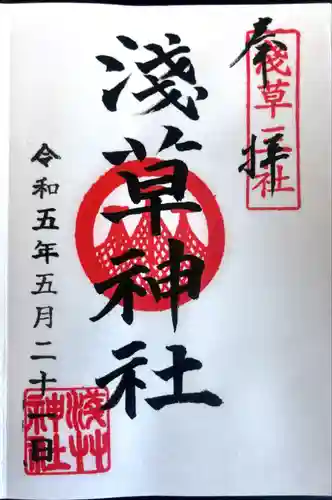 奉拝
淺草三社
淺草神社
令和五年五月二十一日
淺草神社